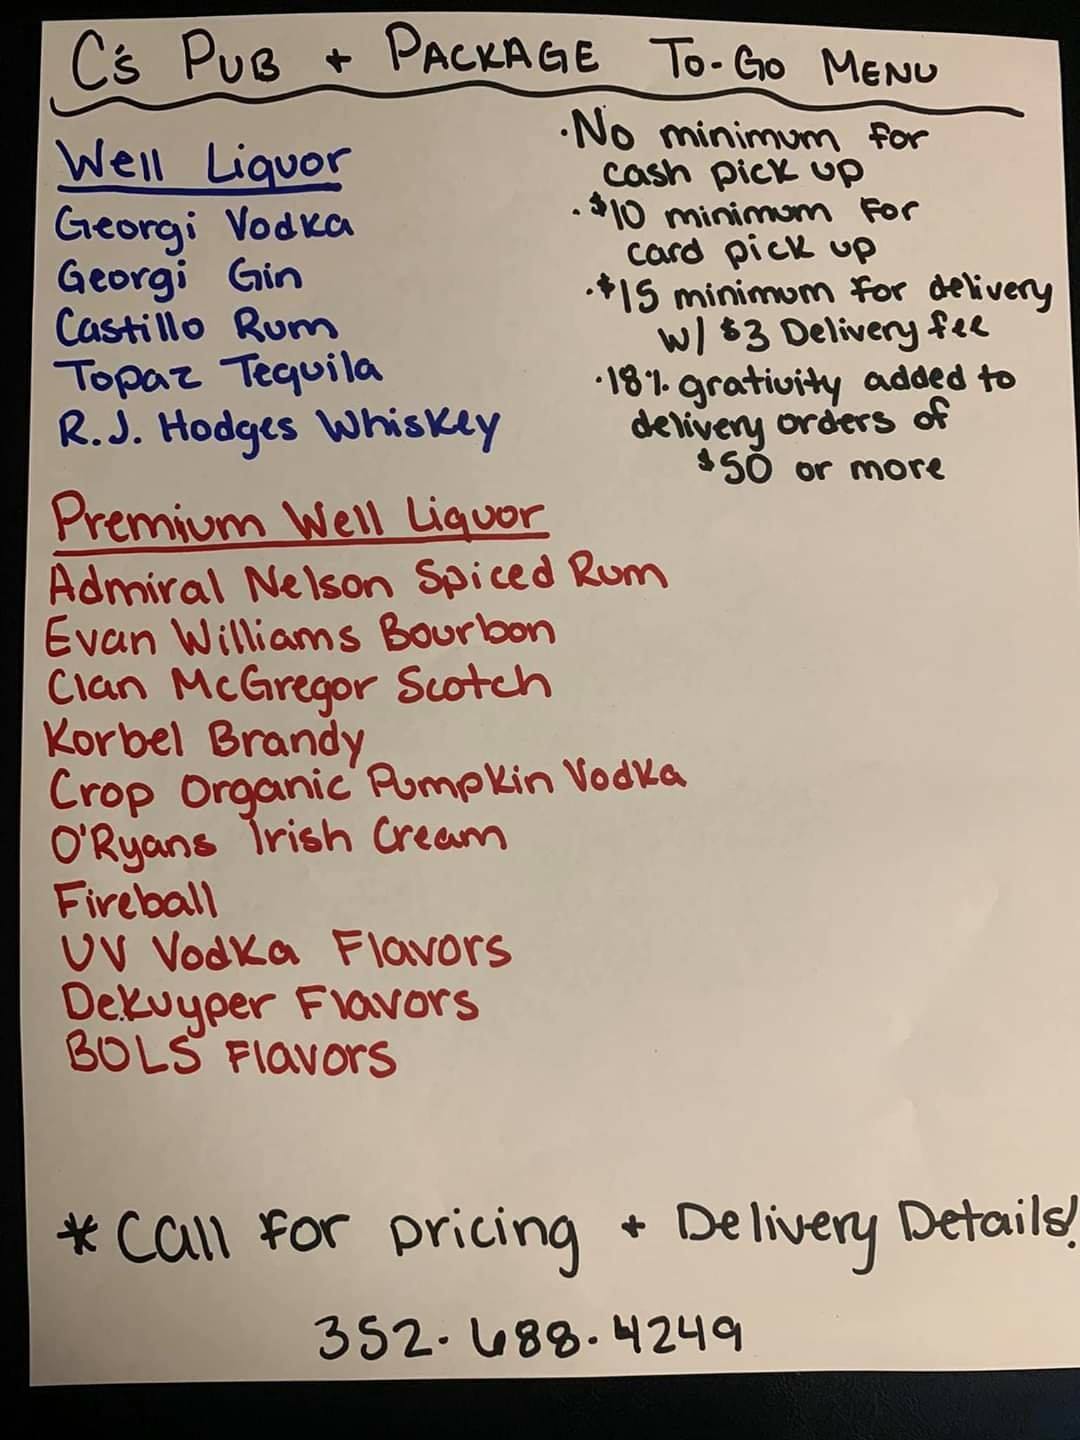 C's PUB + PACKAGE TO-GO MENU
Well Liquor
Georgi Vodka
Georgi Gin
Castillo Rum
Topaz Tequila
R.J. Hodges Whiskey
·No minimum for
cash pick up
·$10 minimum for
card pick up
·$15 minimum for delivery
w/ $3 Delivery fee
·18% grativity added to
delivery orders of
$50 or more
Premium Well Liquor
Admiral Nelson Spiced Rum
Evan Williams Bourbon
Clan McGregor Scotch
Korbel Brandy
Crop Organic Pumpkin Vodka
O'Ryans Irish Cream
Fireball
UV Vodka Flavors
Dekuyper Flavors
BOLS Flavors
* Call for pricing + Delivery Details!
352·688·4249